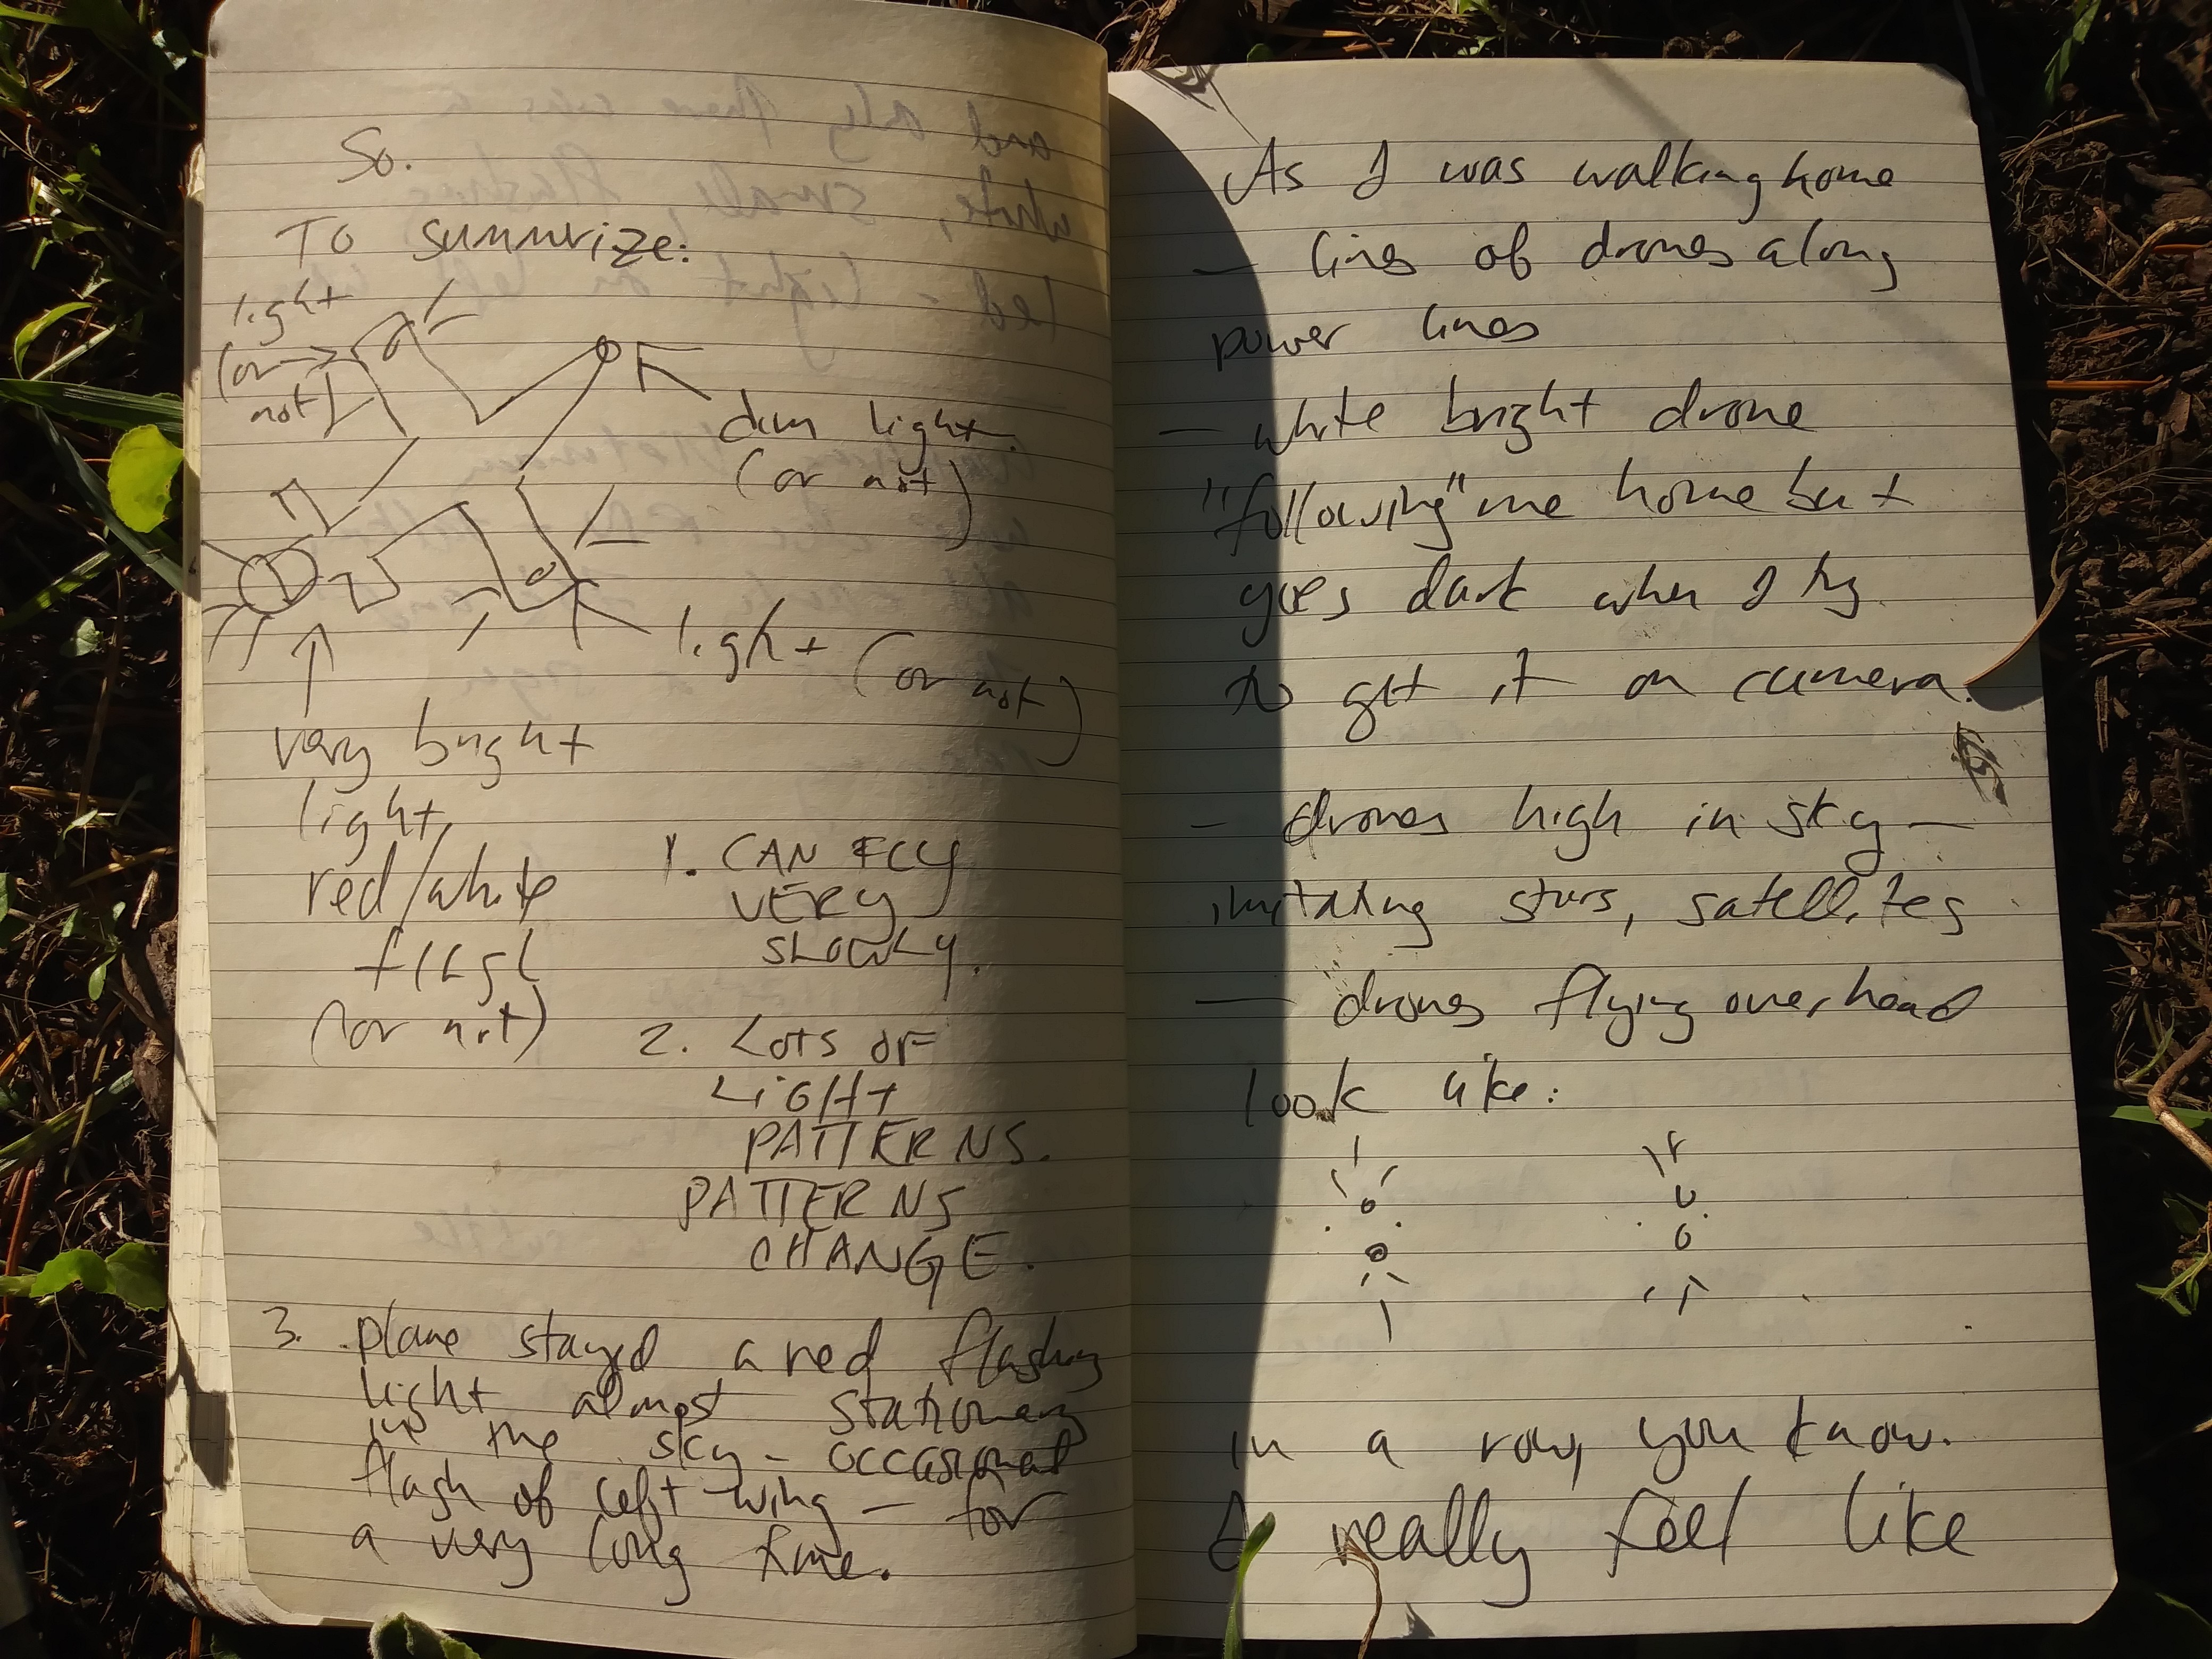 So.
To summrize:
light
(or
not)
dim light.
(or not)
light (or not)
very bright
light,
red/white
(or not)
1. CAN FLY
VERY
SLOWLY.
2. LOTS OF
LIGHT
PATTERNS.
PATTERNS
CHANGE.
3. plane stayed a red flashing
light almost stationary
in the sky - occasional
flash of left wing - for
a very long time.
As I was walking home
- lines of drones along
power lines
- white bright drone
"following" me home but
goes dark when I try
to get it on camera.
- drones high in sky -
imitating stars, satellites
- drones flying overhead
look like:
in a row, you know.
I really feel like